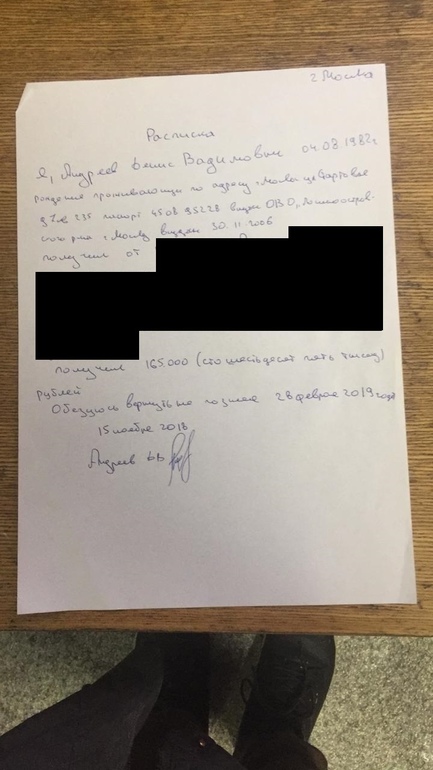 г Москва
Расписка
Я, Андреев Денис Вадимович 04.08.1982г
рождения проживающий по адресу г. Москва ул Стартовая
паспорт 4508 выдан ОВД Лосиноостров-
ского р-на г. Москвы выдан 30.11.2006
получил от
получил 165.000 (сто шестьдесят пять тысяч)
рублей
Обязуюсь вернуть не позднее 28 февраля 2019 года
15 ноября 2018
Андреев